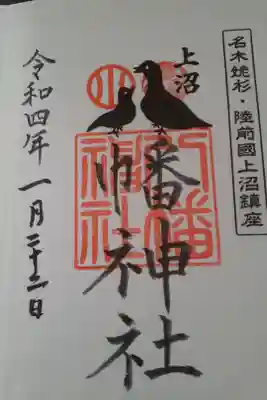 名木姥杉・陸前國上沼鎮座
上沼
幡神社
八幡
神社
令和四年一月二十二日